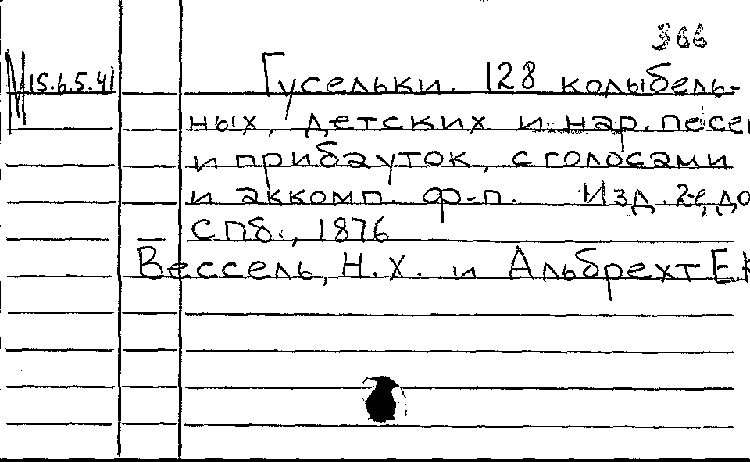 366
М 15.6.5.41 Гусельки. 128 колыбель-
ных, детских и нар. песен
и прибауток, с голосами
и аккомп. ф-п. Изд. 2-е, до
СПб., 1876
Вессель, Н.Х. и Альбрехт Е.К